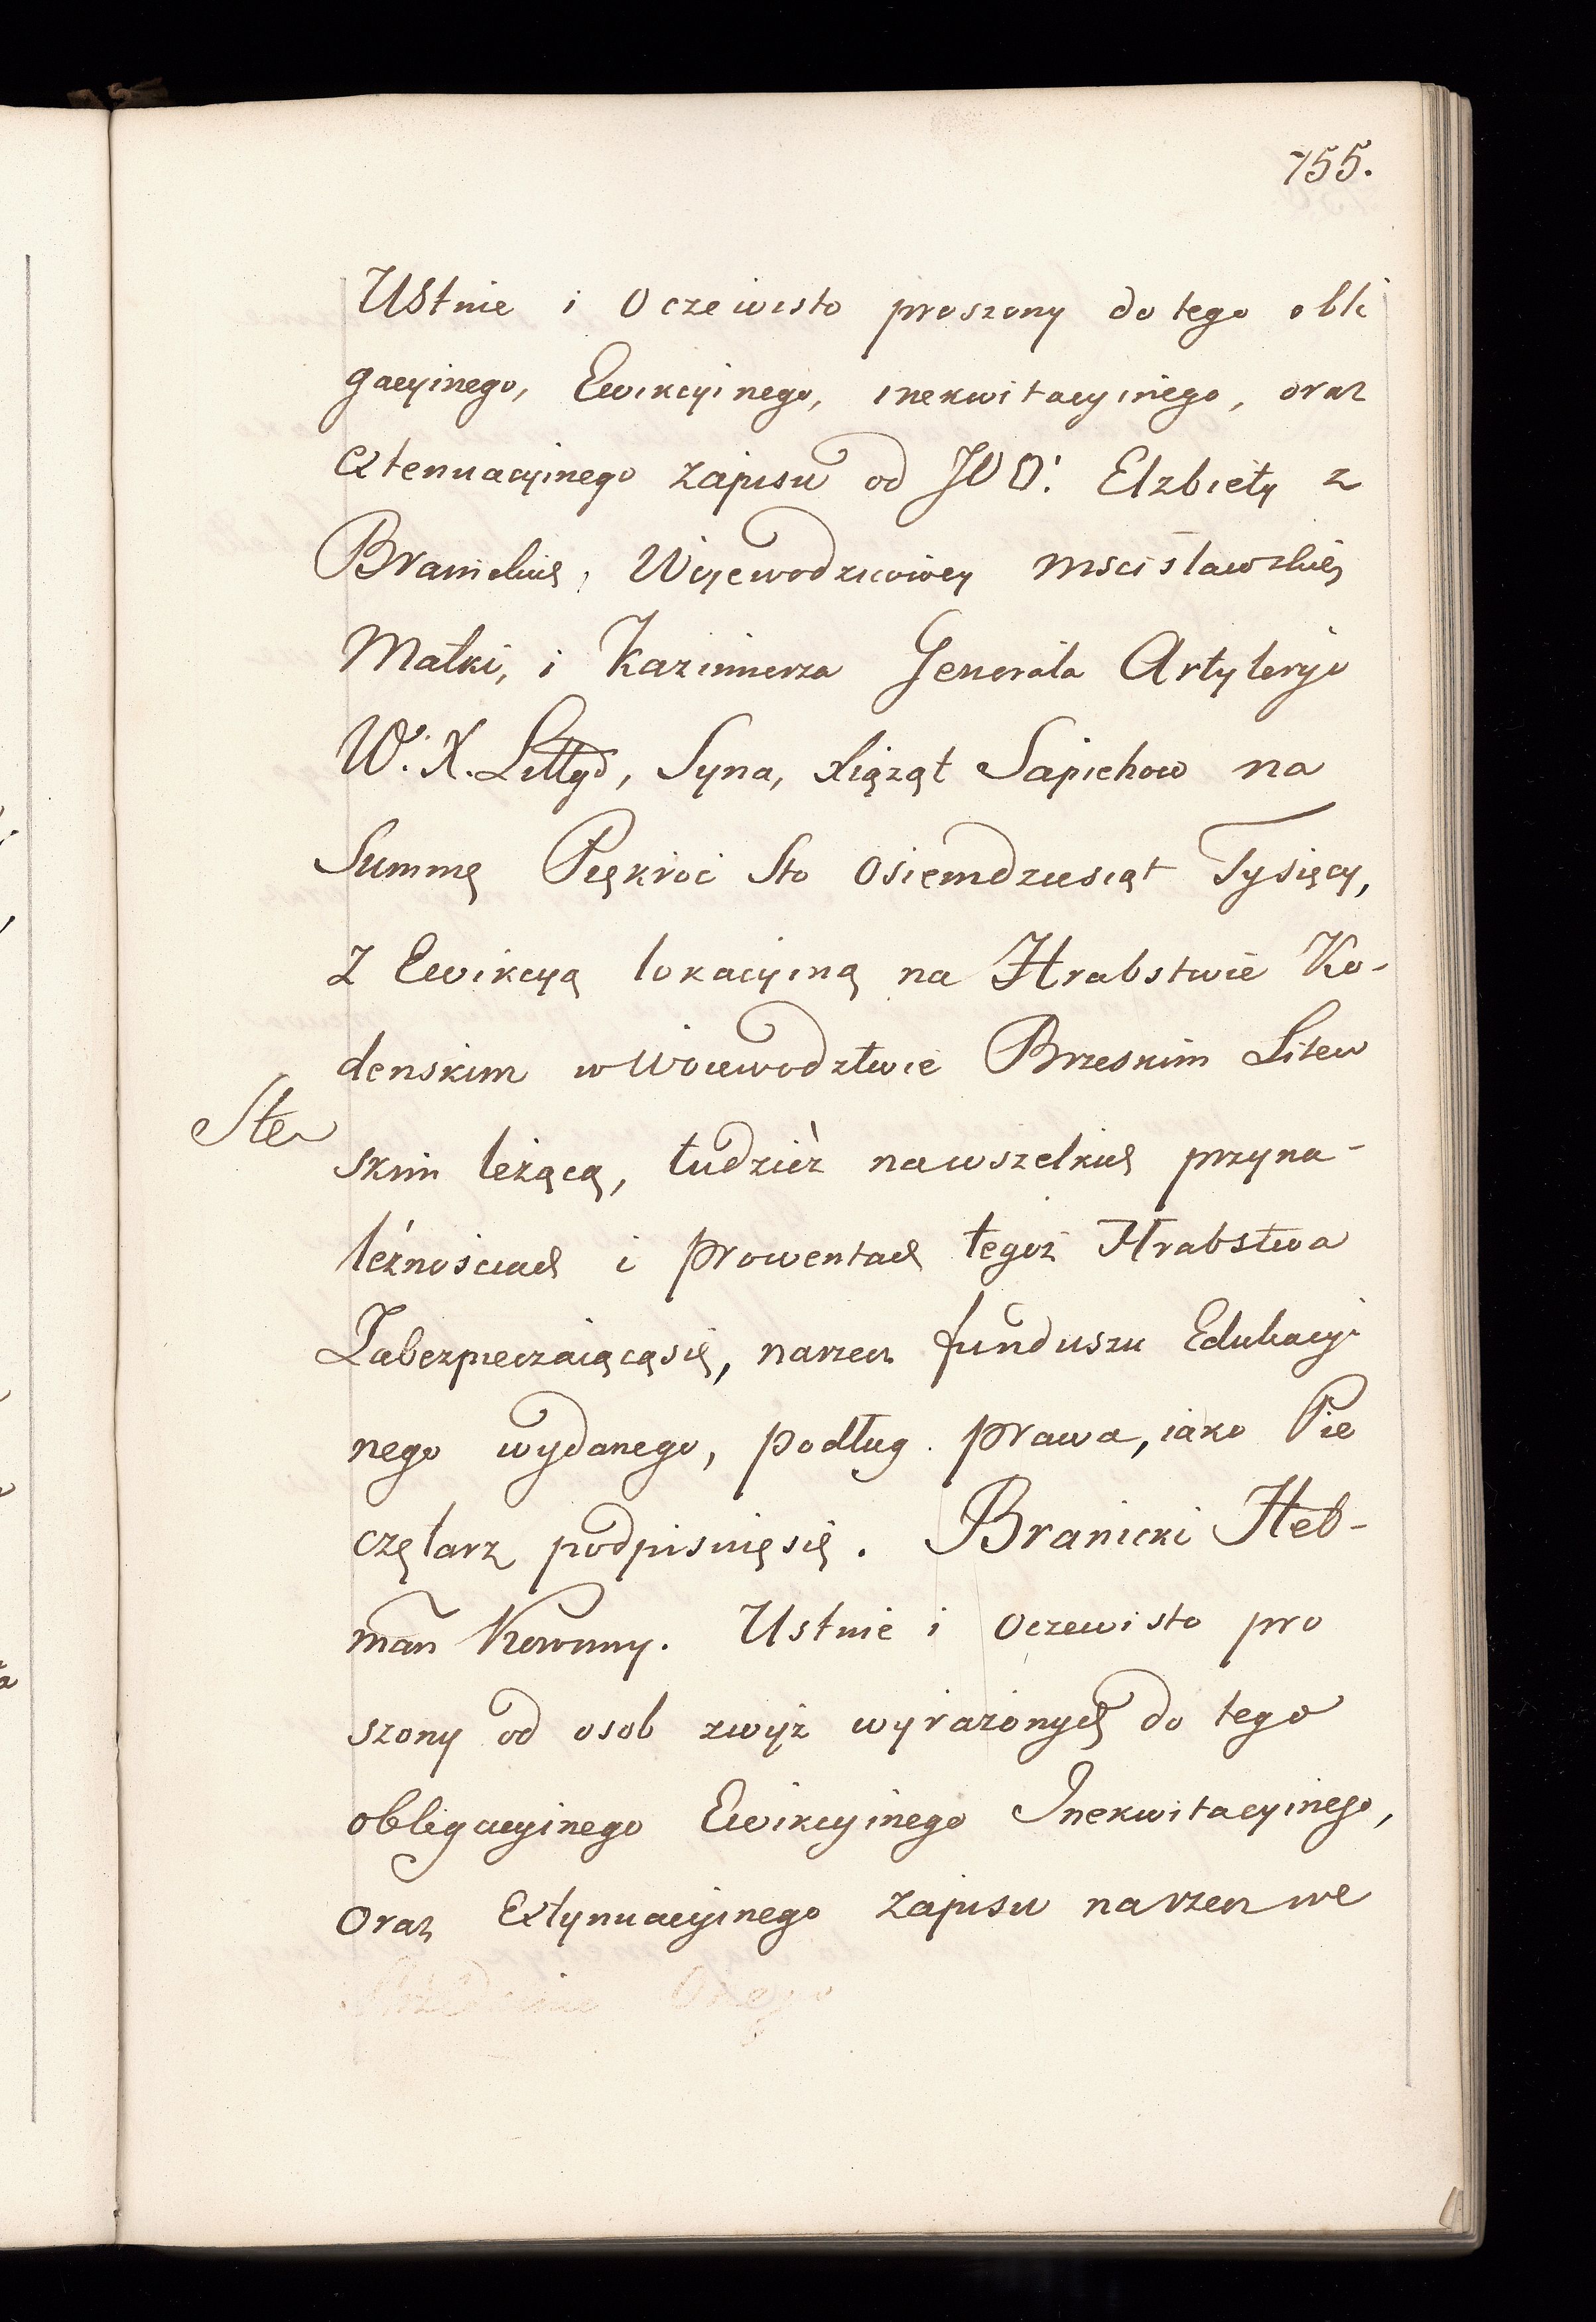 755.
Ustnie i Oczewisto proszony do tego obli
gacyinego, Ewikcyinego, inekwitacyinego, oraz
extenuacyinego zapisu od JOO: Elzbiety z
Branickich, Wojewodzicowey Mscisławskiey
Matki, i Kazimierza Generała Artyleryi
W. X. Littgo, Syna, Xiążąt Sapiehow na
Summę Piękroć Sto Osiemdziesiąt Tysięcy,
z Ewikcyą lokacyiną na Hrabstwie Ko-
denskim w Woiewodztwie Brzeskim Litew
skim leżącą, tudzież na wszelkich przyna-
leżnościach i prowentach tegoż Hrabstwa
Zabezpieczaiącą się, narzecz funduszu Edukacyi
nego wydanego, podług prawa, iako Pie
czętarz podpisuię się. Branicki Het-
man Koronny. Ustnie i Oczewisto pro
szony od osob zwyż wyrażonych do tego
obligacyinego Ewikcyinego Inekwitacyinego,
Oraz Extynuacyinego zapisu narzecz we